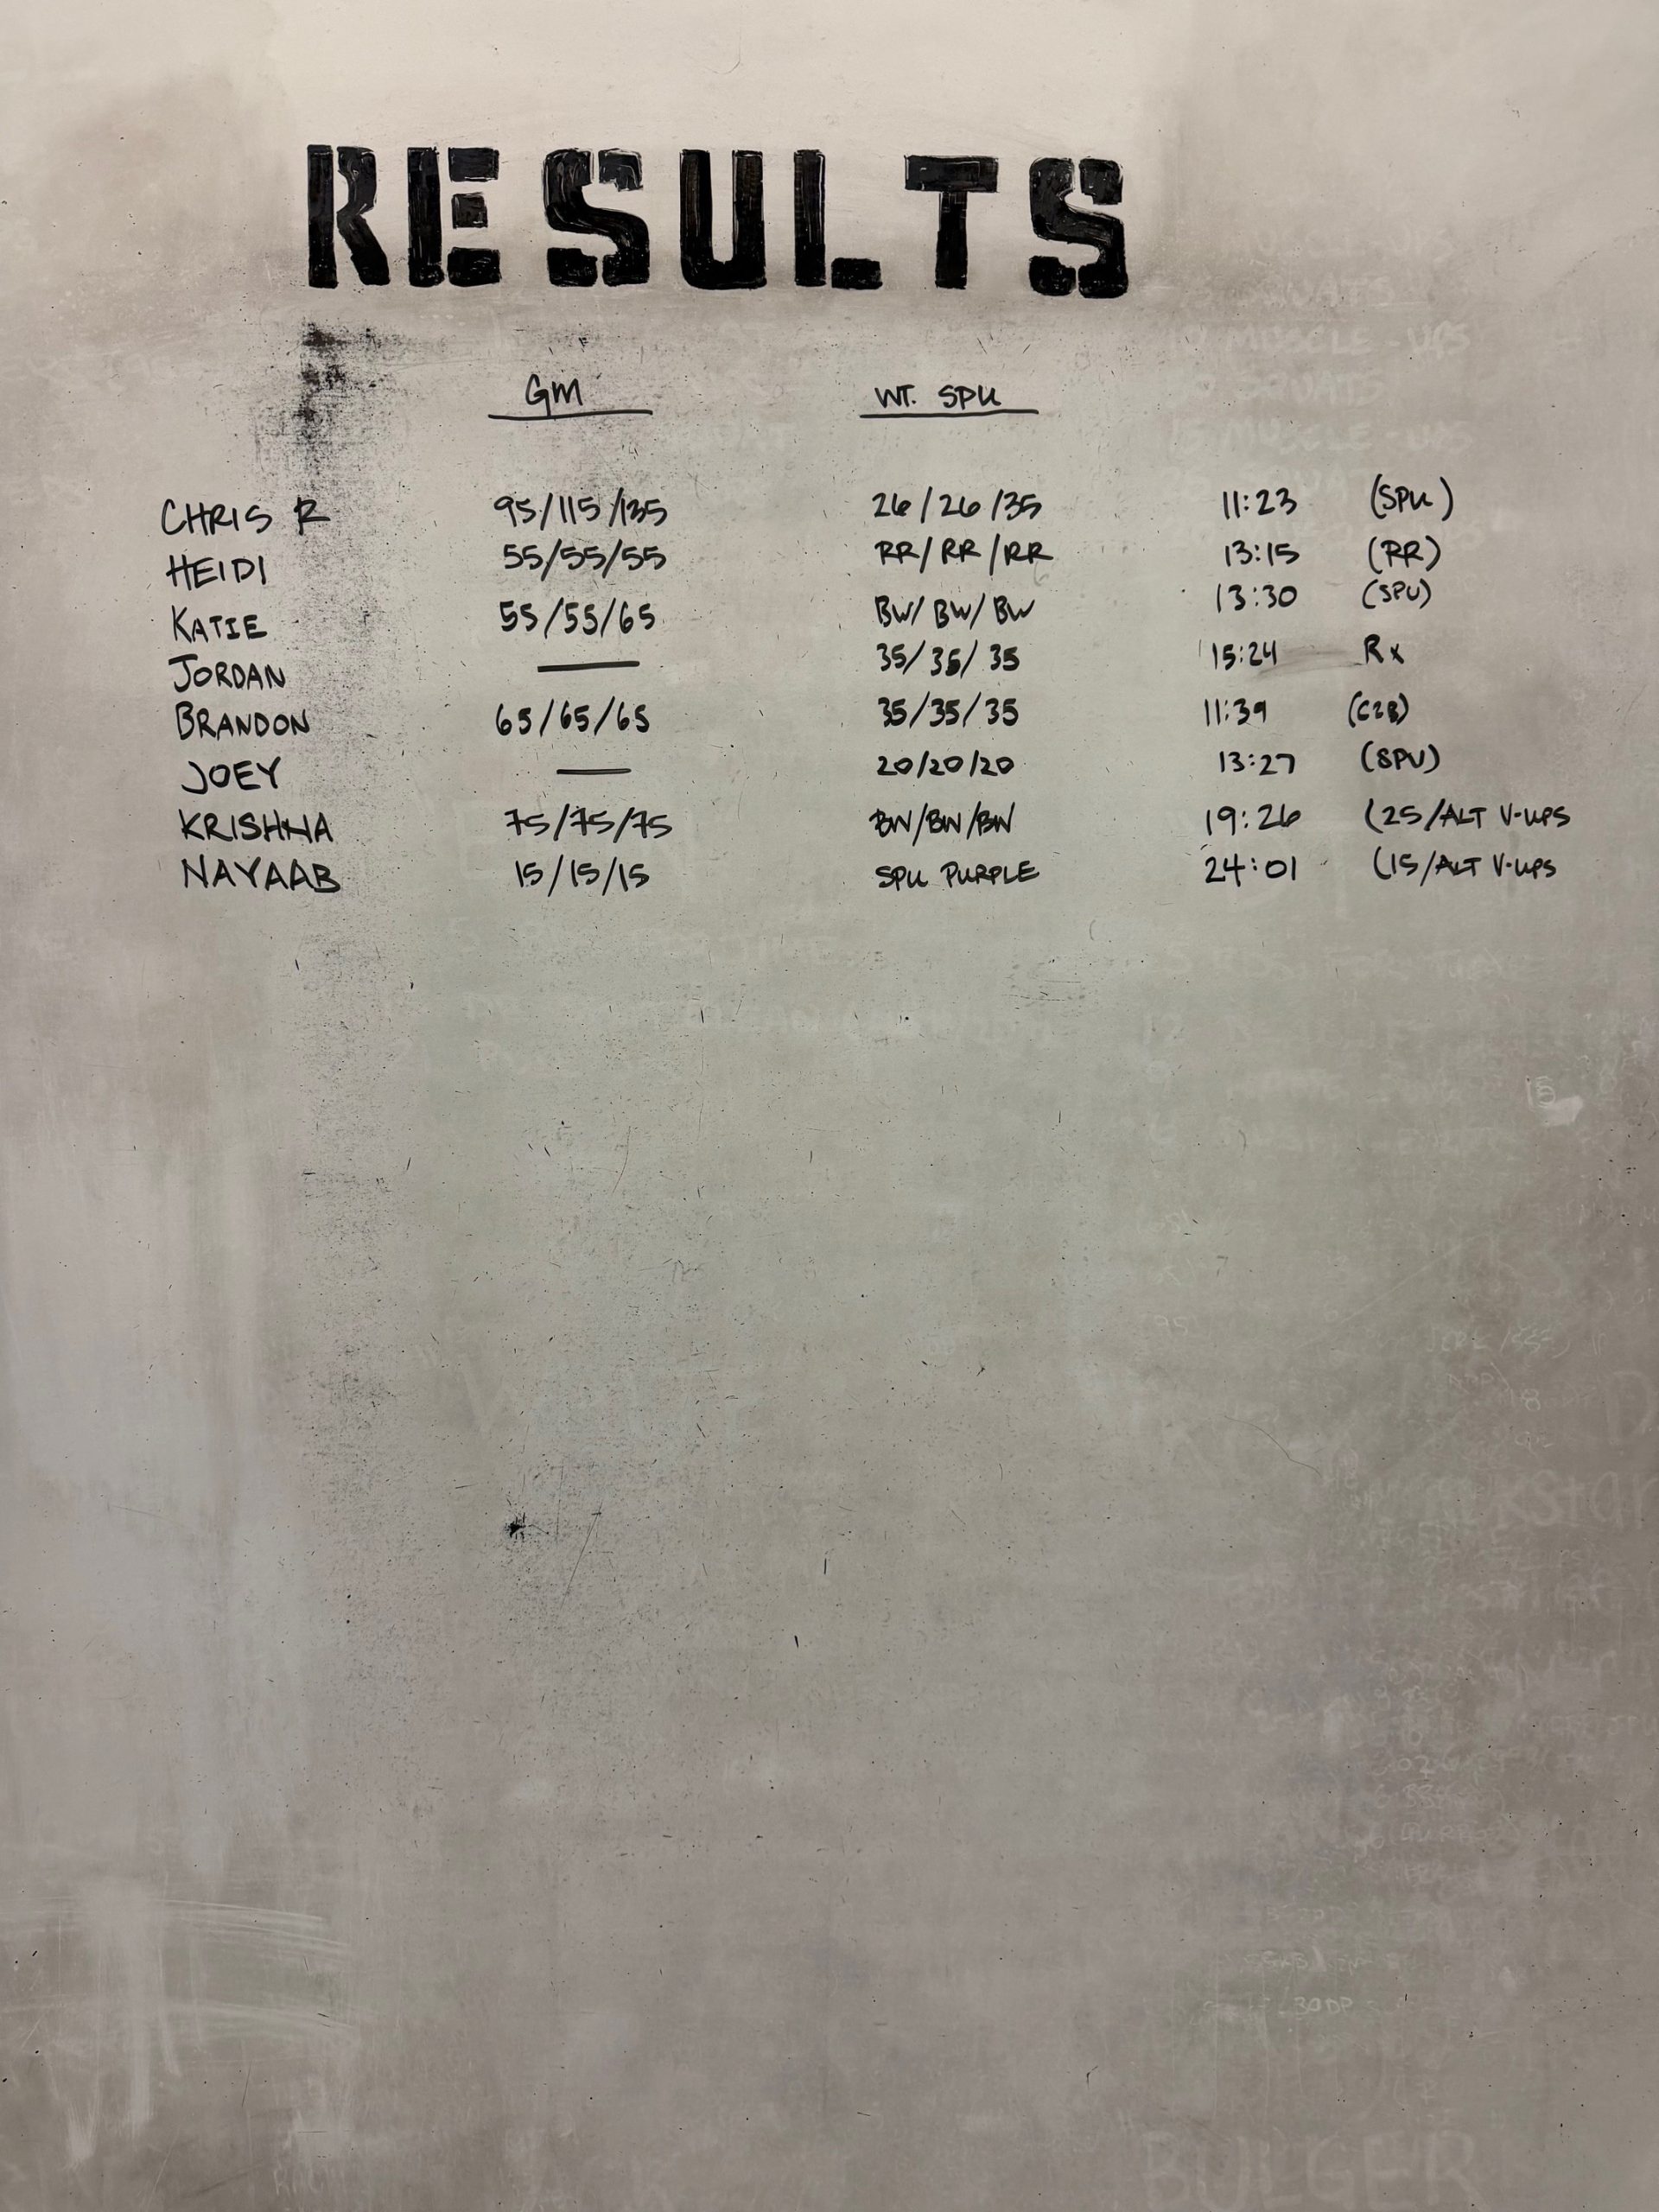 RESULTS
GM WT. SPU
CHRIS R 95/115/135 26/26/35 11:23 (SPU)
HEIDI 55/55/55 RR/RR/RR 13:15 (RR)
KATIE 55/55/65 BW/BW/BW 13:30 (SPU)
JORDAN — 35/35/35 15:24 Rx
BRANDON 65/65/65 35/35/35 11:39 (C2B)
JOEY — 20/20/20 13:27 (SPU)
KRISHNA 75/75/75 BW/BW/BW 19:26 (25/ALT V-UPS
NAYAAB 15/15/15 SPU PURPLE 24:01 (15/ALT V-UPS
MUSCLE-UPS
MUSCLE-UPS
BULGER